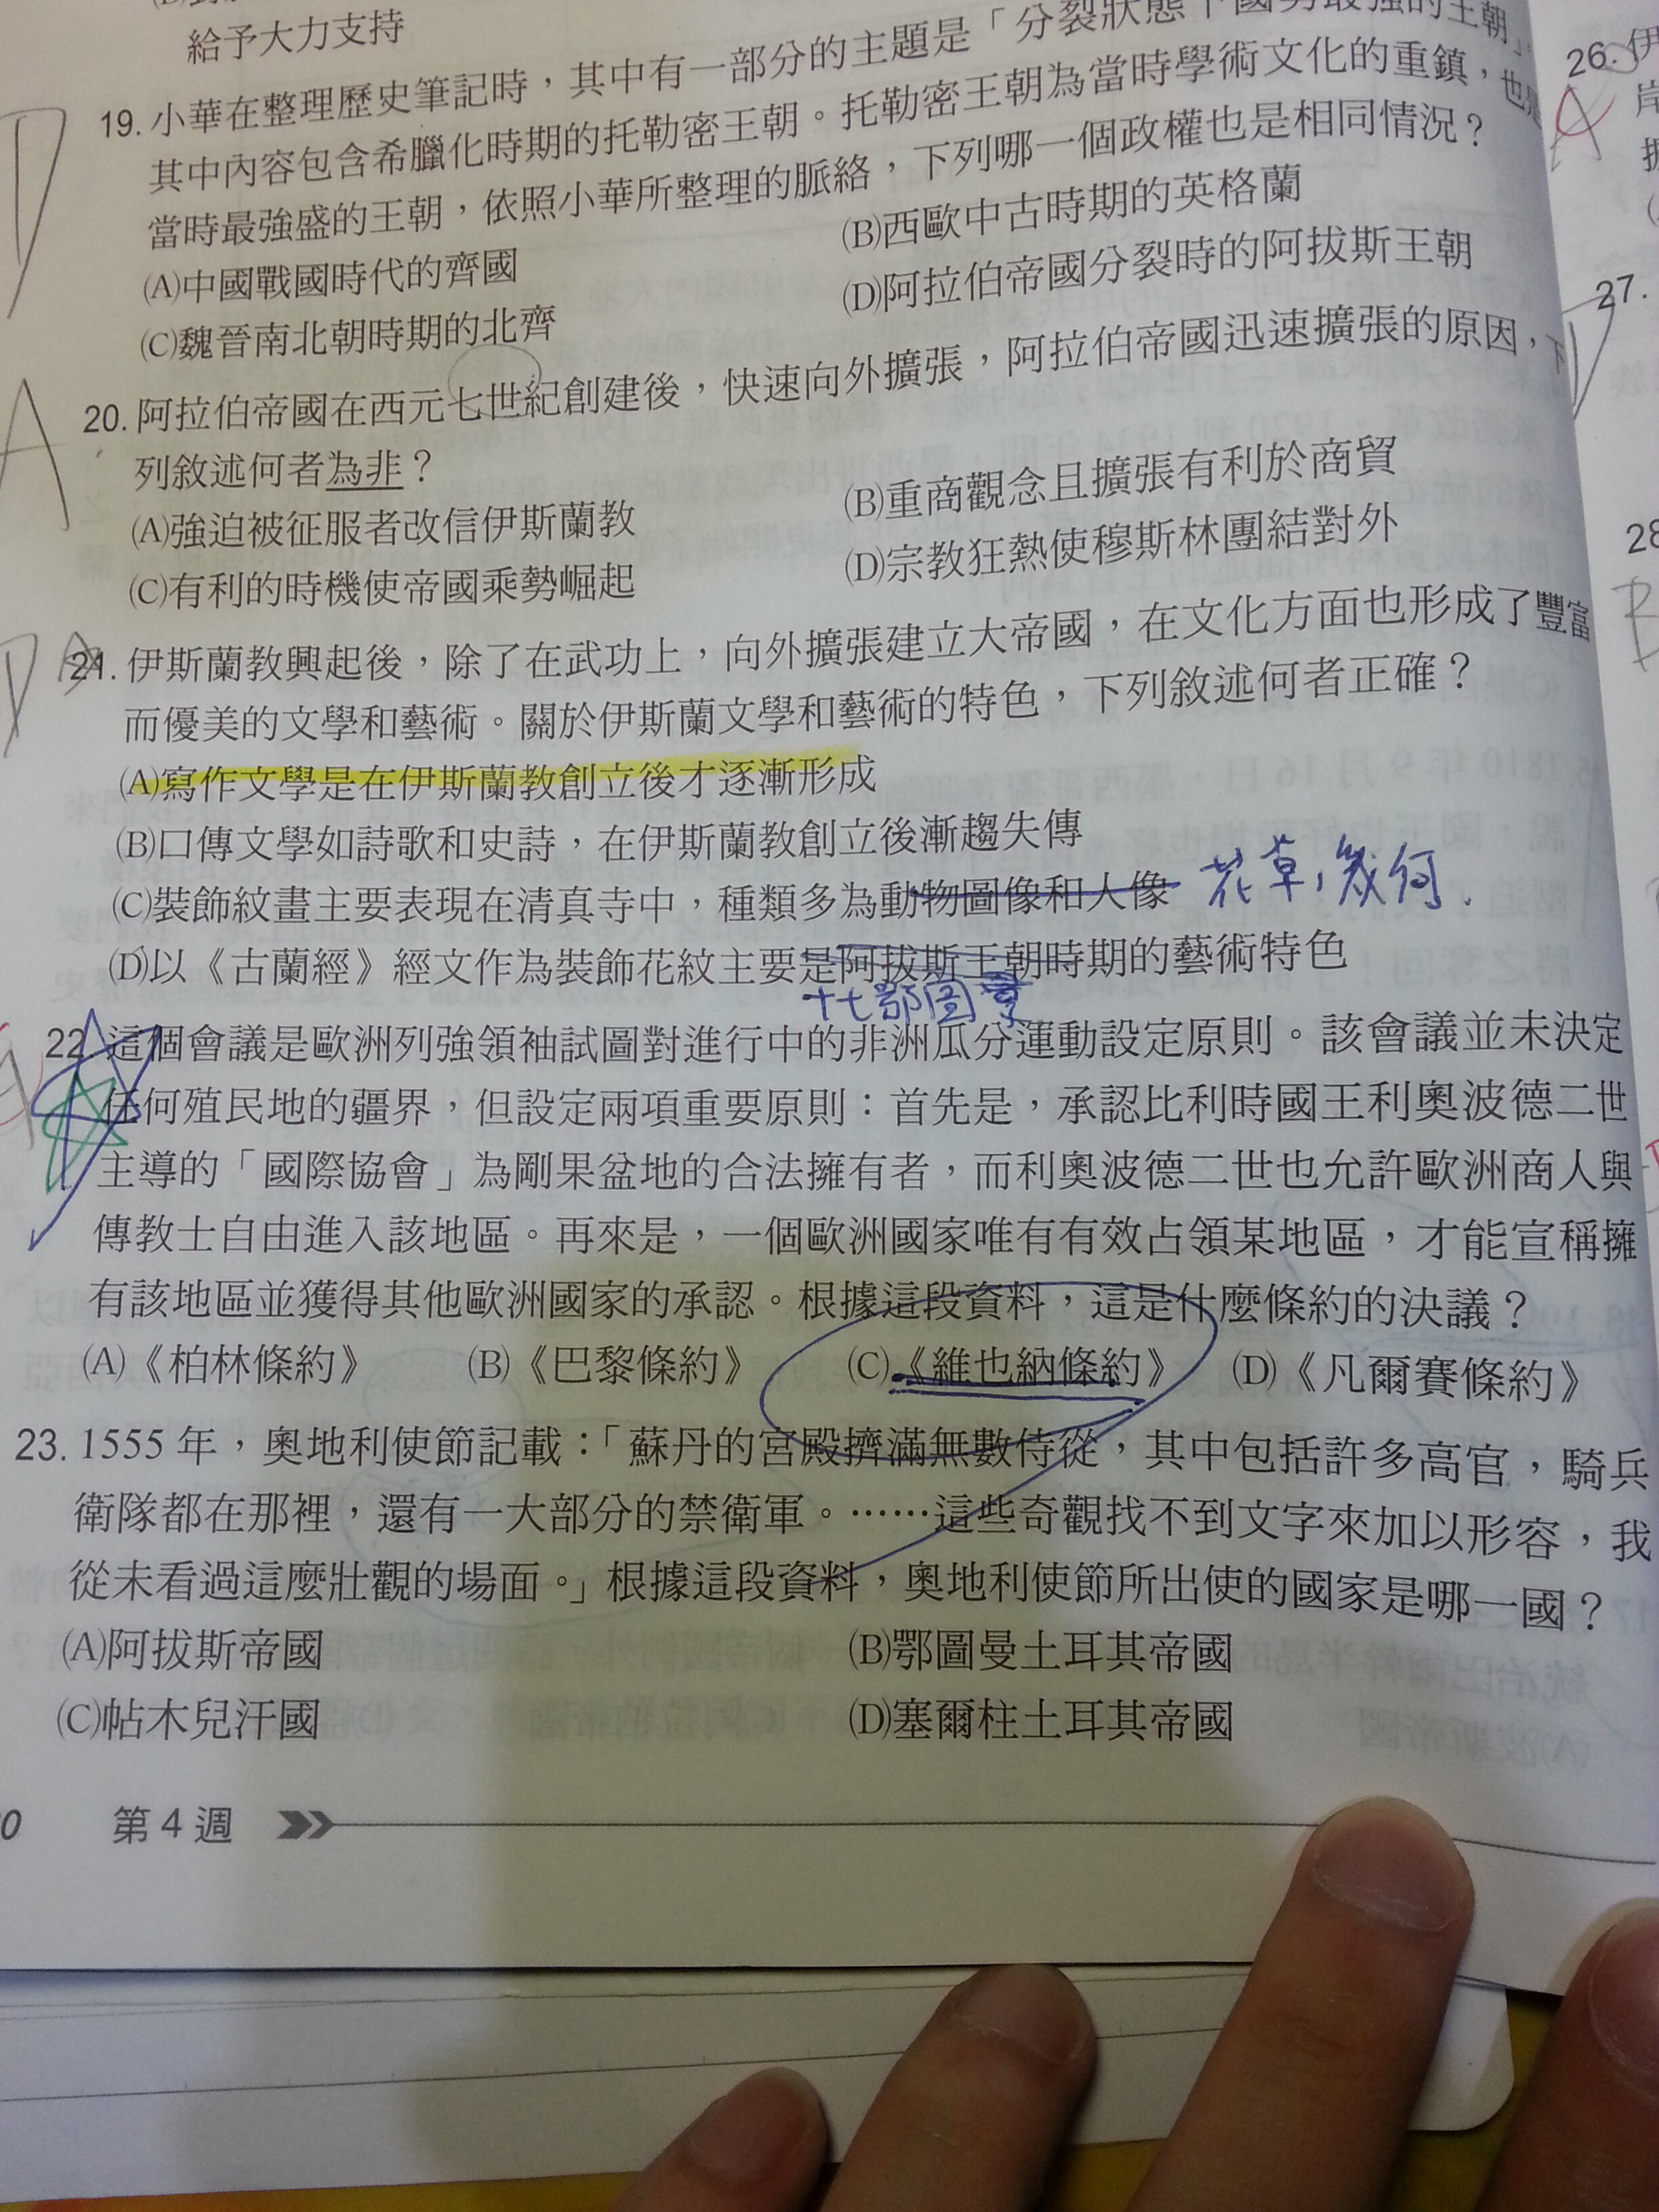 給予大力支持
19. 小華在整理歷史筆記時，其中有一部分的主題是「分裂狀態下國勢最強的王朝」，
其中內容包含希臘化時期的托勒密王朝。托勒密王朝為當時學術文化的重鎮，也是
當時最強盛的王朝，依照小華所整理的脈絡，下列哪一個政權也是相同情況？
(A)中國戰國時代的齊國 (B)西歐中古時期的英格蘭
(C)魏晉南北朝時期的北齊 (D)阿拉伯帝國分裂時的阿拔斯王朝
D
20. 阿拉伯帝國在西元七世紀創建後，快速向外擴張，阿拉伯帝國迅速擴張的原因，下
列敘述何者為非？
(A)強迫被征服者改信伊斯蘭教 (B)重商觀念且擴張有利於商貿
(C)有利的時機使帝國乘勢崛起 (D)宗教狂熱使穆斯林團結對外
A
21. 伊斯蘭教興起後，除了在武功上，向外擴張建立大帝國，在文化方面也形成了豐富
而優美的文學和藝術。關於伊斯蘭文學和藝術的特色，下列敘述何者正確？
(A)寫作文學是在伊斯蘭教創立後才逐漸形成
(B)口傳文學如詩歌和史詩，在伊斯蘭教創立後漸趨失傳
(C)裝飾紋畫主要表現在清真寺中，種類多為動物圖像和人像 花草，幾何.
(D)以《古蘭經》經文作為裝飾花紋主要是阿拔斯王朝時期的藝術特色
D
22. 這個會議是歐洲列強領袖試圖對進行中的非洲瓜分運動設定原則。該會議並未決定
任何殖民地的疆界，但設定兩項重要原則：首先是，承認比利時國王利奧波德二世
主導的「國際協會」為剛果盆地的合法擁有者，而利奧波德二世也允許歐洲商人與
傳教士自由進入該地區。再來是，一個歐洲國家唯有有效占領某地區，才能宣稱擁
有該地區並獲得其他歐洲國家的承認。根據這段資料，這是什麼條約的決議？
(A)《柏林條約》 (B)《巴黎條約》 (C)《維也納條約》 (D)《凡爾賽條約》
23. 1555 年，奧地利使節記載：「蘇丹的宮殿擠滿無數侍從，其中包括許多高官，騎兵
衛隊都在那裡，還有一大部分的禁衛軍。……這些奇觀找不到文字來加以形容，我
從未看過這麼壯觀的場面。」根據這段資料，奧地利使節所出使的國家是哪一國？
(A)阿拔斯帝國 (B)鄂圖曼土耳其帝國
(C)帖木兒汗國 (D)塞爾柱土耳其帝國
第 4 週
26. 伊
A
27.
28
B